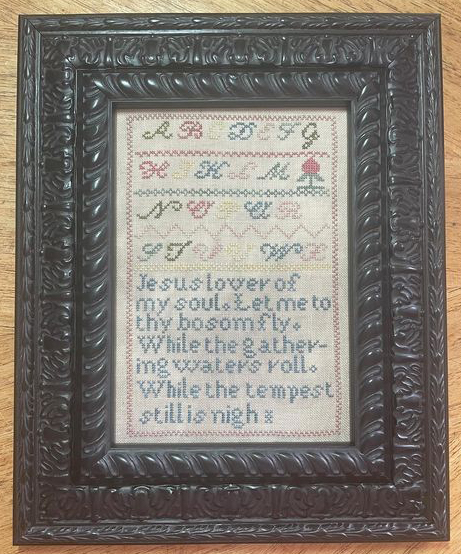 A B C D E F G
H I K L M
N O P Q R
S T U W X
Jesus lover of
my soul. Let me to
thy bosom fly.
While the gather-
ing waters roll.
While the tempest
still is nigh :